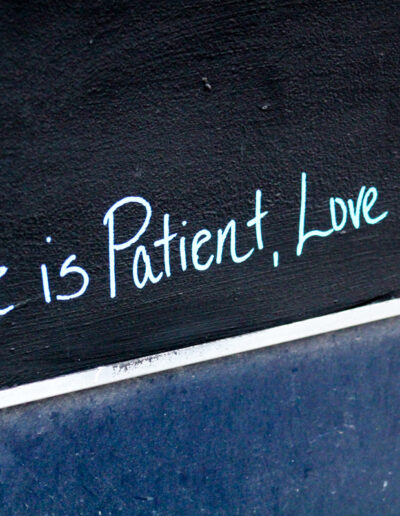 is Patient, Love